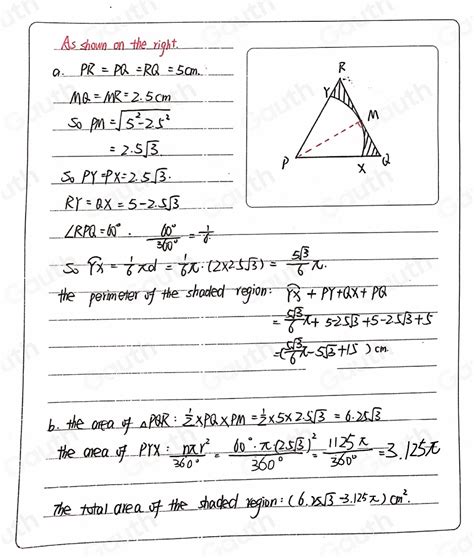 As shown on the right.
a. PR = PQ = RQ = 5cm.
MQ = MR = 2.5cm
So PM = √5²-2.5²
= 2.5√3.
So PY=PX=2.5√3.
RY = QX = 5-2.5√3
∠RPQ=60°. 60°/360° = 1/6.
So YX = 1/6 πd = 1/6 π·(2×2.5√3) = 5√3/6 π.
the perimeter of the shaded region: YX + PY+QX+PQ
= 5√3/6 π + 5-2.5√3+5-2.5√3+5
=(5√3/6 π-5√3+15) cm
b. the area of △PQR: 1/2×PQ×PM = 1/2×5×2.5√3 = 6.25√3
the area of PYX: nπr²/360° = 60°·π·(2.5√3)²/360° = 1125π/360° = 3.125π
The total area of the shaded region: (6.25√3-3.125π) cm².
R
Y
M
P
X
Q
Gauth